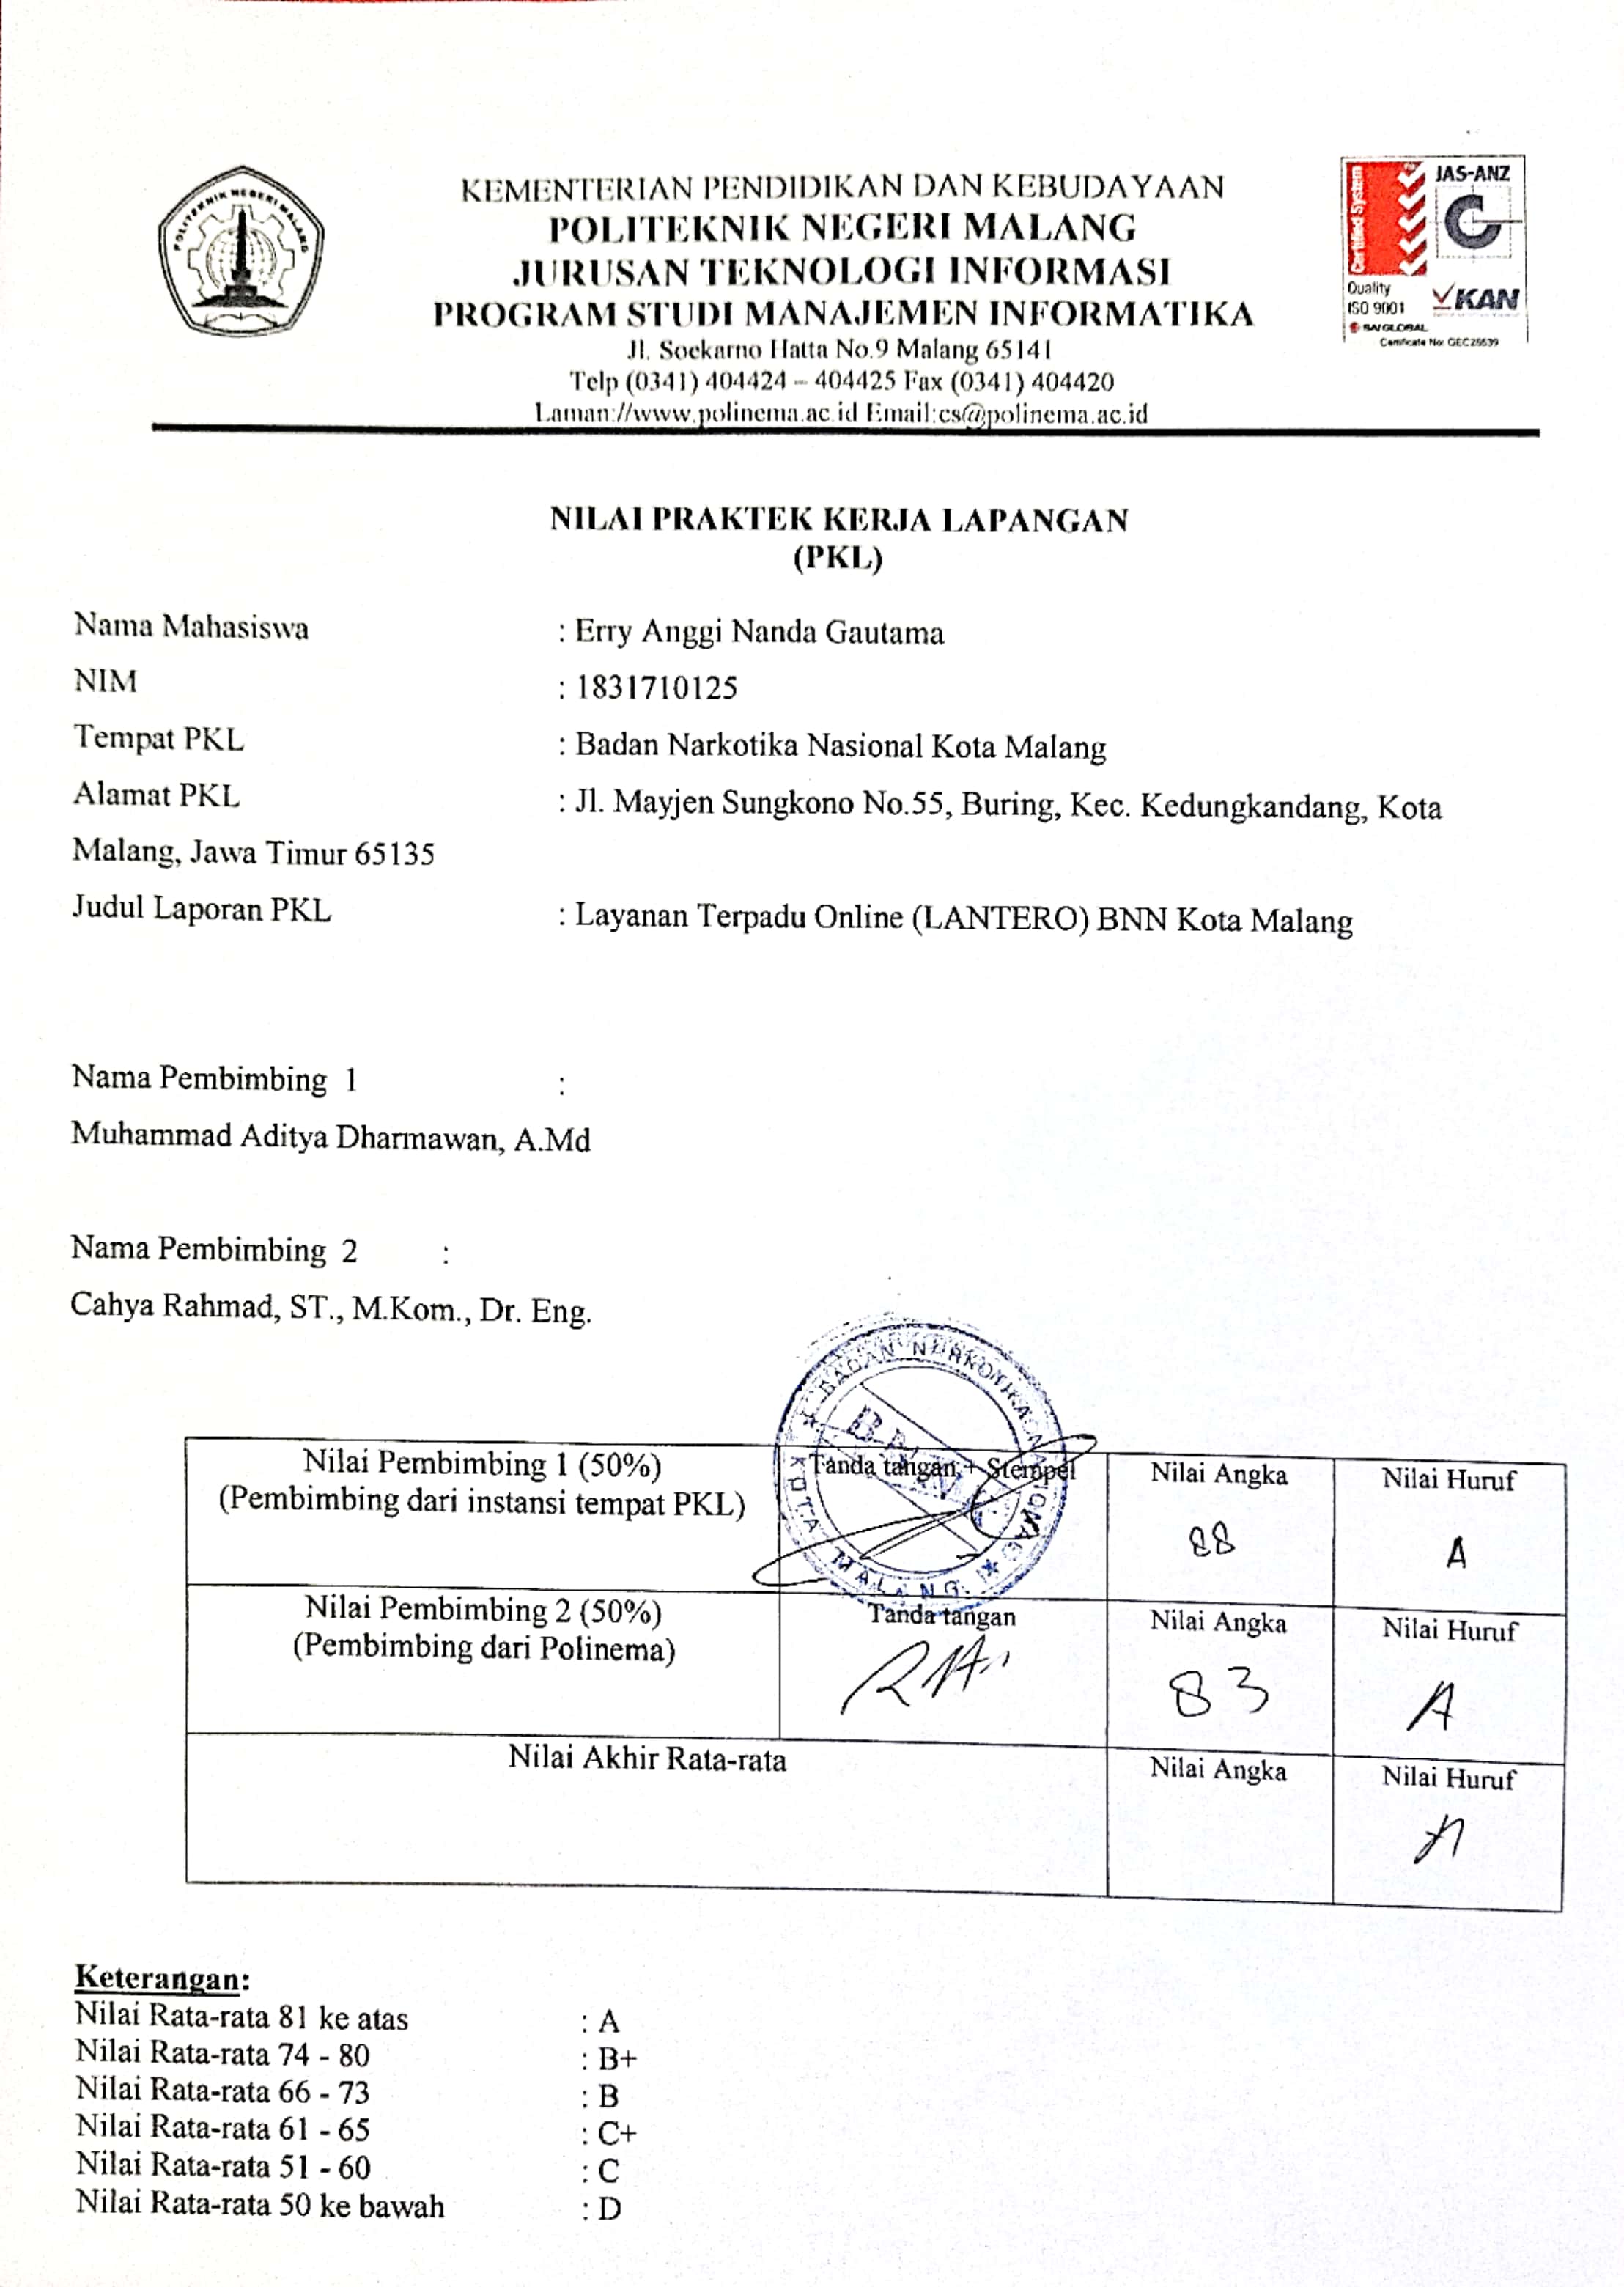 POLITEKNIK NEGERI MALANG
KEMENTERIAN PENDIDIKAN DAN KEBUDAYAAN
POLITEKNIK NEGERI MALANG
JURUSAN TEKNOLOGI INFORMASI
PROGRAM STUDI MANAJEMEN INFORMATIKA
Jl. Soekarno Hatta No.9 Malang 65141
Telp (0341) 404424 – 404425 Fax (0341) 404420
Laman://www.polinema.ac.id Email:cs@polinema.ac.id
Certified System
JAS-ANZ
Quality
ISO 9001
KAN
SAI GLOBAL
Certificate No: QEC25539
NILAI PRAKTEK KERJA LAPANGAN
(PKL)
Nama Mahasiswa : Erry Anggi Nanda Gautama
NIM : 1831710125
Tempat PKL : Badan Narkotika Nasional Kota Malang
Alamat PKL : Jl. Mayjen Sungkono No.55, Buring, Kec. Kedungkandang, Kota
Malang, Jawa Timur 65135
Judul Laporan PKL : Layanan Terpadu Online (LANTERO) BNN Kota Malang
Nama Pembimbing 1 :
Muhammad Aditya Dharmawan, A.Md
Nama Pembimbing 2 :
Cahya Rahmad, ST., M.Kom., Dr. Eng.
BADAN NARKOTIKA NASIONAL
KOTA MALANG
Nilai Pembimbing 1 (50%) Tanda tangan + Stempel Nilai Angka Nilai Huruf
(Pembimbing dari instansi tempat PKL)
88 A
Nilai Pembimbing 2 (50%) Tanda tangan Nilai Angka Nilai Huruf
(Pembimbing dari Polinema)
83 A
Nilai Akhir Rata-rata Nilai Angka Nilai Huruf
A
Keterangan:
Nilai Rata-rata 81 ke atas : A
Nilai Rata-rata 74 - 80 : B+
Nilai Rata-rata 66 - 73 : B
Nilai Rata-rata 61 - 65 : C+
Nilai Rata-rata 51 - 60 : C
Nilai Rata-rata 50 ke bawah : D